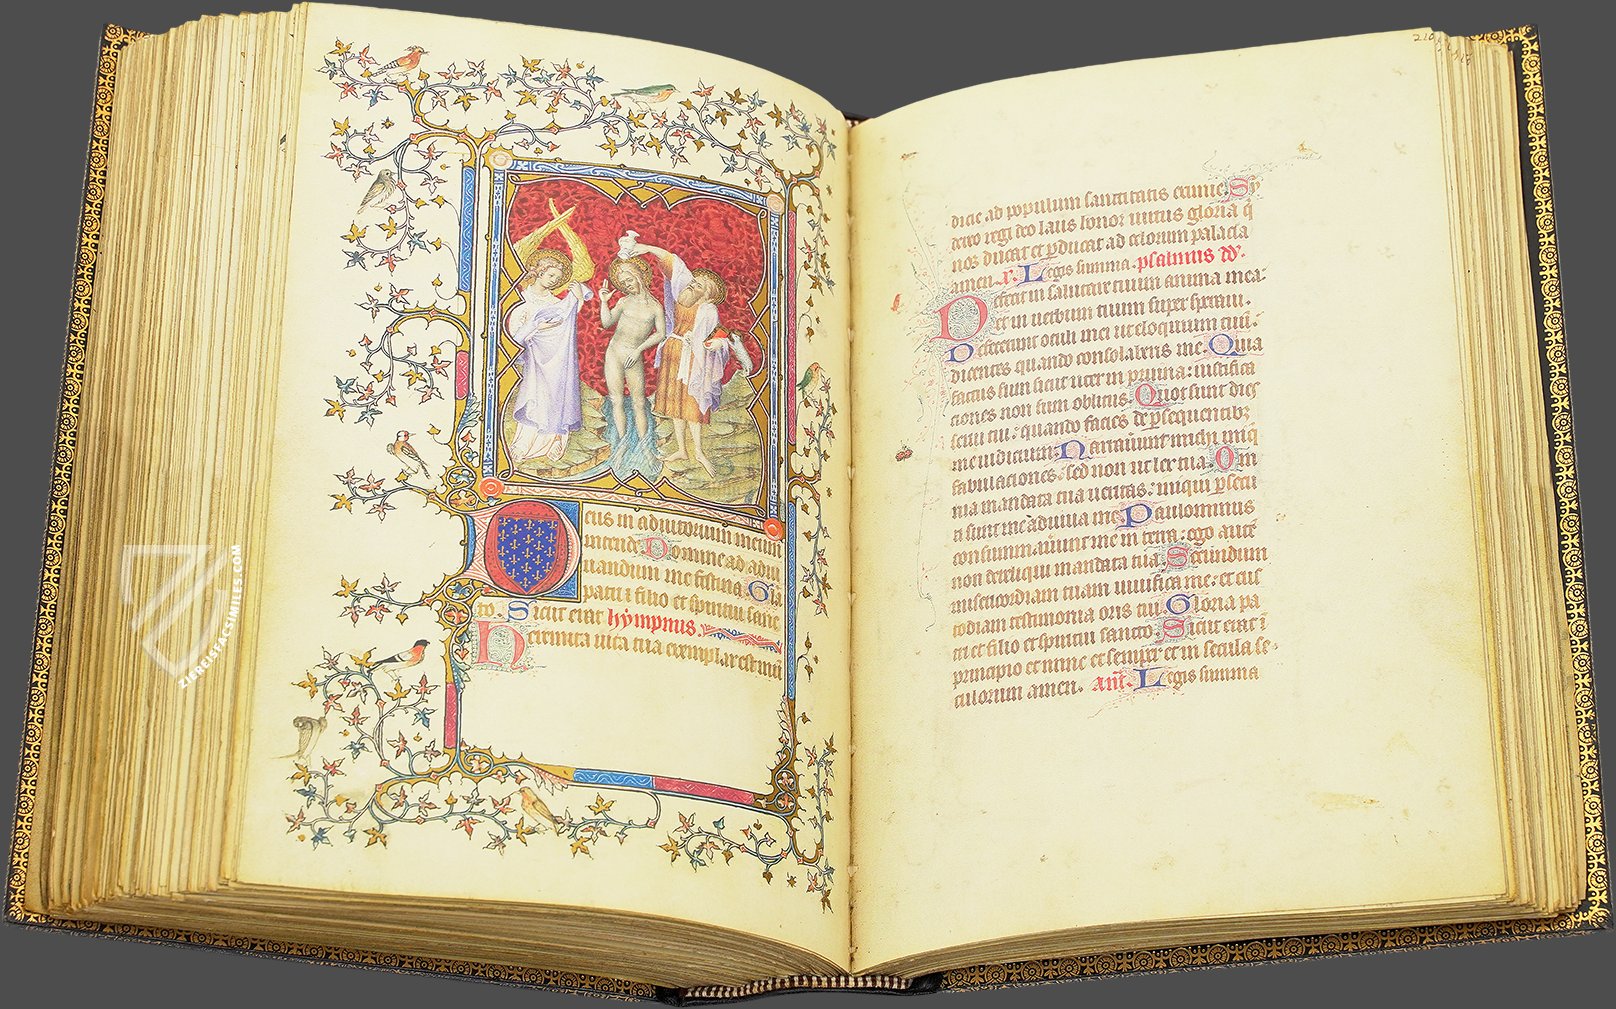 eus in adiutorium meum
intende Domine ad adiu
uandum me festina Gla
patri ⁊ filio et spiritui sanc
to. Sicut erat hympnus.
Heremita uita tua exemplar est mu
ZIEREISFACSIMILES.COM
210
dicte ad populum sanctitatis eximie Sy
deree regi deo laus honor uirtus gloria q̄
nos ducat et ꝑducat ad celorum palacia
amen. r. Legis summa. psalmus dd.
Defecit in salutare tuum anima mea:
et in uerbum tuum super speraui.
Defecerunt oculi mei in eloquium tuū:
dicentes quando consolaberis me. Quia
factus sum sicut uter in pruina: iustifica
ciones non sum oblitus. Quot sunt dies
serui tui: quando facies de ꝑsequentibꝫ
me iudicium Narrauerunt michi iniq̄
fabulaciones: sed non ut lex tua. Om
nia mandata tua ueritas: iniqui ꝑsecu
ti sunt me adiuua me Paulominus
consumm̄auerunt me in terra: ego autē
non dereliqui mandata tua. Secundum
misericordiam tuam uiuifica me: et cus
todiam testimonia oris tui Gloria pa
tri et filio et spiritui sancto Sicut erat ī
principio et nunc et semper et in secula se
culorum amen. ant̄. Legis summa